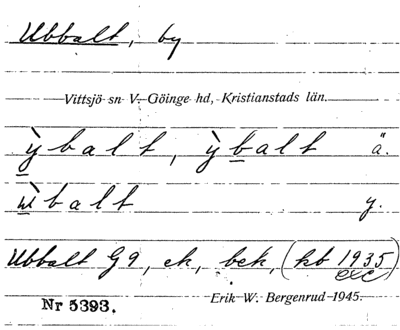 Ubbalt, by
Vittsjö sn V. Göinge hd, Kristianstads län.
ỳbalt, ỳbalt ä.
ẁbalt y.
Ubbalt G9, ek, bek, (kb 1935)
exc
Erik W. Bergenrud 1945.
Nr 5393.